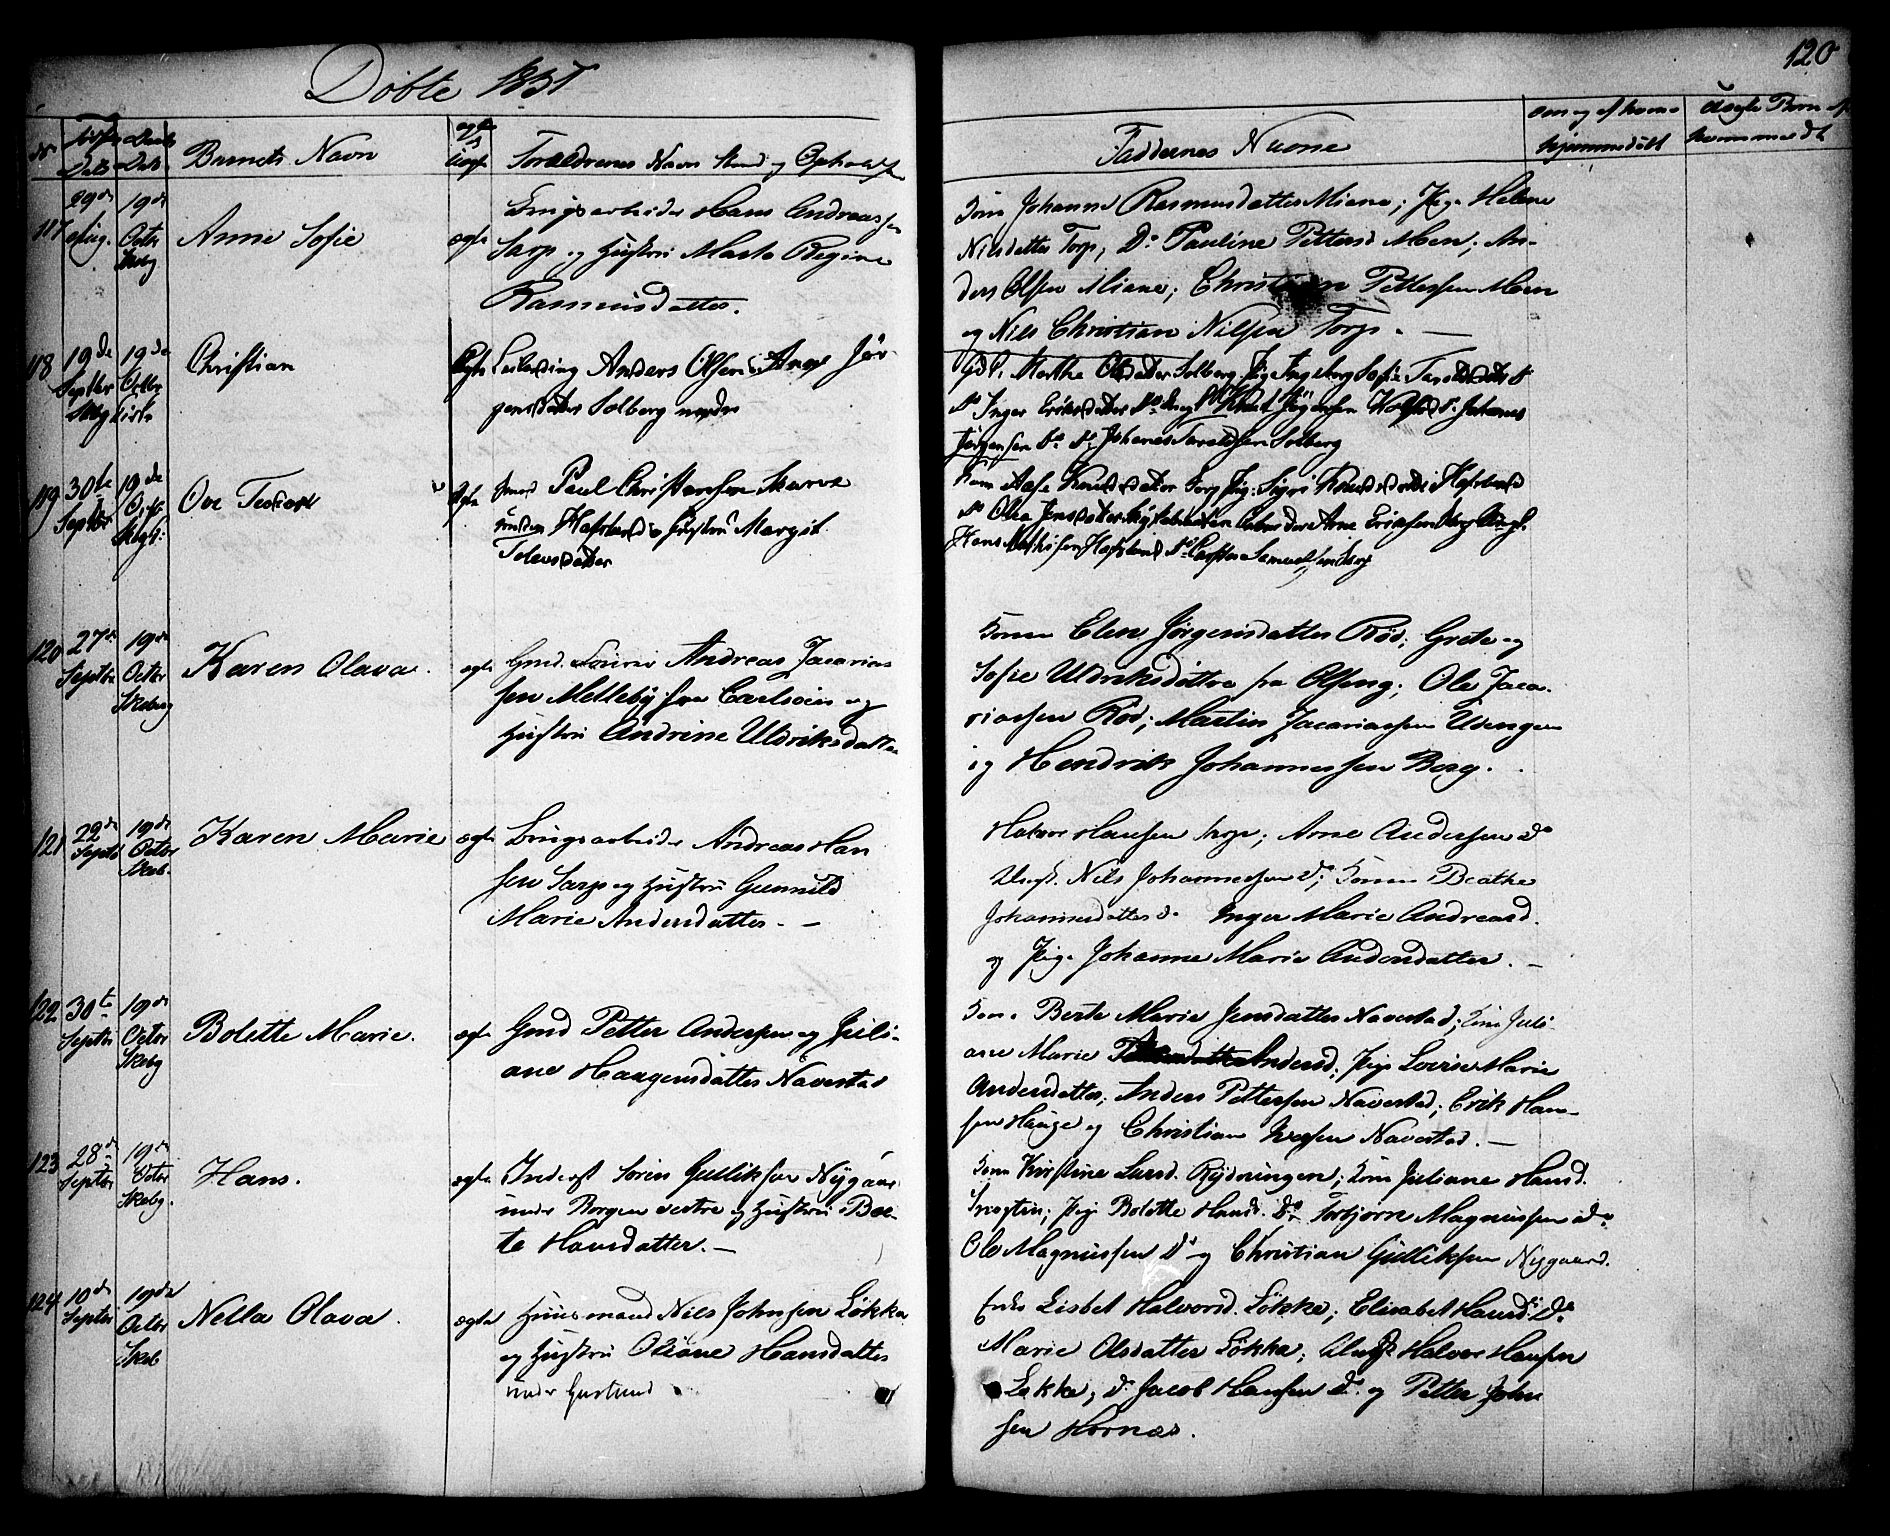 Døbte 1851
120
No
Fødsels
Dato
Daabs
Dato
Barnets Navn
ægte
uægte
Forældrenes Navn Stand og Ophold
Faddernes Navne
om og af hvem
hjemmedøbt
117
29de
Aug.
19de
Octbr
Skbg
Anne Sofie
ægte
Brugsarbeider Hans Andreassen
Sarp og Hustru Marta Regine
Rasmusdatter.
Kone Johanne Rasmusdatter Miane; Pige Helene
Nilsdatter Torp; Do Pauline Pettersd Moen; An-
ders Olsen Miane; Christian Pettersen Moen
og Nils Christian Nilsen Torp. —
118
19de
Septbr
19de
Octbr
Christian
Ægte
Leilending Anders Olsen Anne Jør-
gensdatter Solberg nedre
Martha Olsdatter Solberg Pige Ingeborg Sofie Taraldsdatter
do Inger Eriksdatter do Ungk Knut Jørgensen do Johanes
Jørgensen do do Johanes Taraldsen Solberg
119
30te
Septbr
19de
Octb
Skbg
Ægte
Paul Christensen
Hafslund Hustru Margit
Tolevsdatter
Kone Aase Knudsdatter Torp Pige Sigri Knudsdatter Hafslund
120
27de
Septbr
19de
Octbr
Skberg
Karen Olava.
ægte
Gmd. Andreas Jacarias
sen Melleby fra Carlsøen og
Hustru Andrine Uldriksdatter
Konen Elen Jørgensdatter Rød; Grete og
Sofie Uldriksdøttre fra Olseng; Ole Jaca-
riassen Rød; Martin Jacariassen Utengen
og Hendrik Johannessen Berg.
121
22de
Septbr
19de
Octbr
Skeb.
Karen Marie
ægte
Brugsarbeider Andreas Han
sen Sarp og Hustru Gunnild
Marie Andersdatter. —
Halvor Hansen Sarp; Arne Andersen do
Ungk. Nils Johannessen do; Konen Beathe
Johannesdatter do Inger Marie Andreasd.
og Pige Johanne Marie Andersdatter. —
122
30te
Septbr
19de
Octbr
Skebg
Bolette Marie.
ægte
Gmd Petter Andersen og Juli-
ane Haagensdatter Navestad
Kone Berte Marie Jensdatter Navestad; Kone Juli-
ane Marie Andersd; Pige Lovise Marie
Andersdatter; Anders Pettersen Navestad; Erik Han-
sen Hauge og Christian Navestad. —
123
28de
Septbr
19de
Octbr
Skebg.
Hans.
ægte
Inderst Søren Gulliksen Nygaard
under Borgen vestre og Hustru Ber-
te Hansdatter. —
Kone Kristine Lund. Rydningen; Kone Juliane Hansd.
Pige Bolette Hansd. Do Torbjørn Magnussen do
Ole Magnussen Do og Christian Gulliksen Nygaard.
124
10de
Septbr
19de
Octbr
Skeb
Nella Olava.
ægte
Huusmand Nils Johnsen Løkka
og Hustru Oliane Hansdatter
under
Enke Lisbet Halvorsd. Løkka; Elisabet Hansd. Do
Marie Olsdatter Løkka; Ungk Halvor Hansen
Løkka; do Jacob Hansen do og Petter John
sen Hornæs.